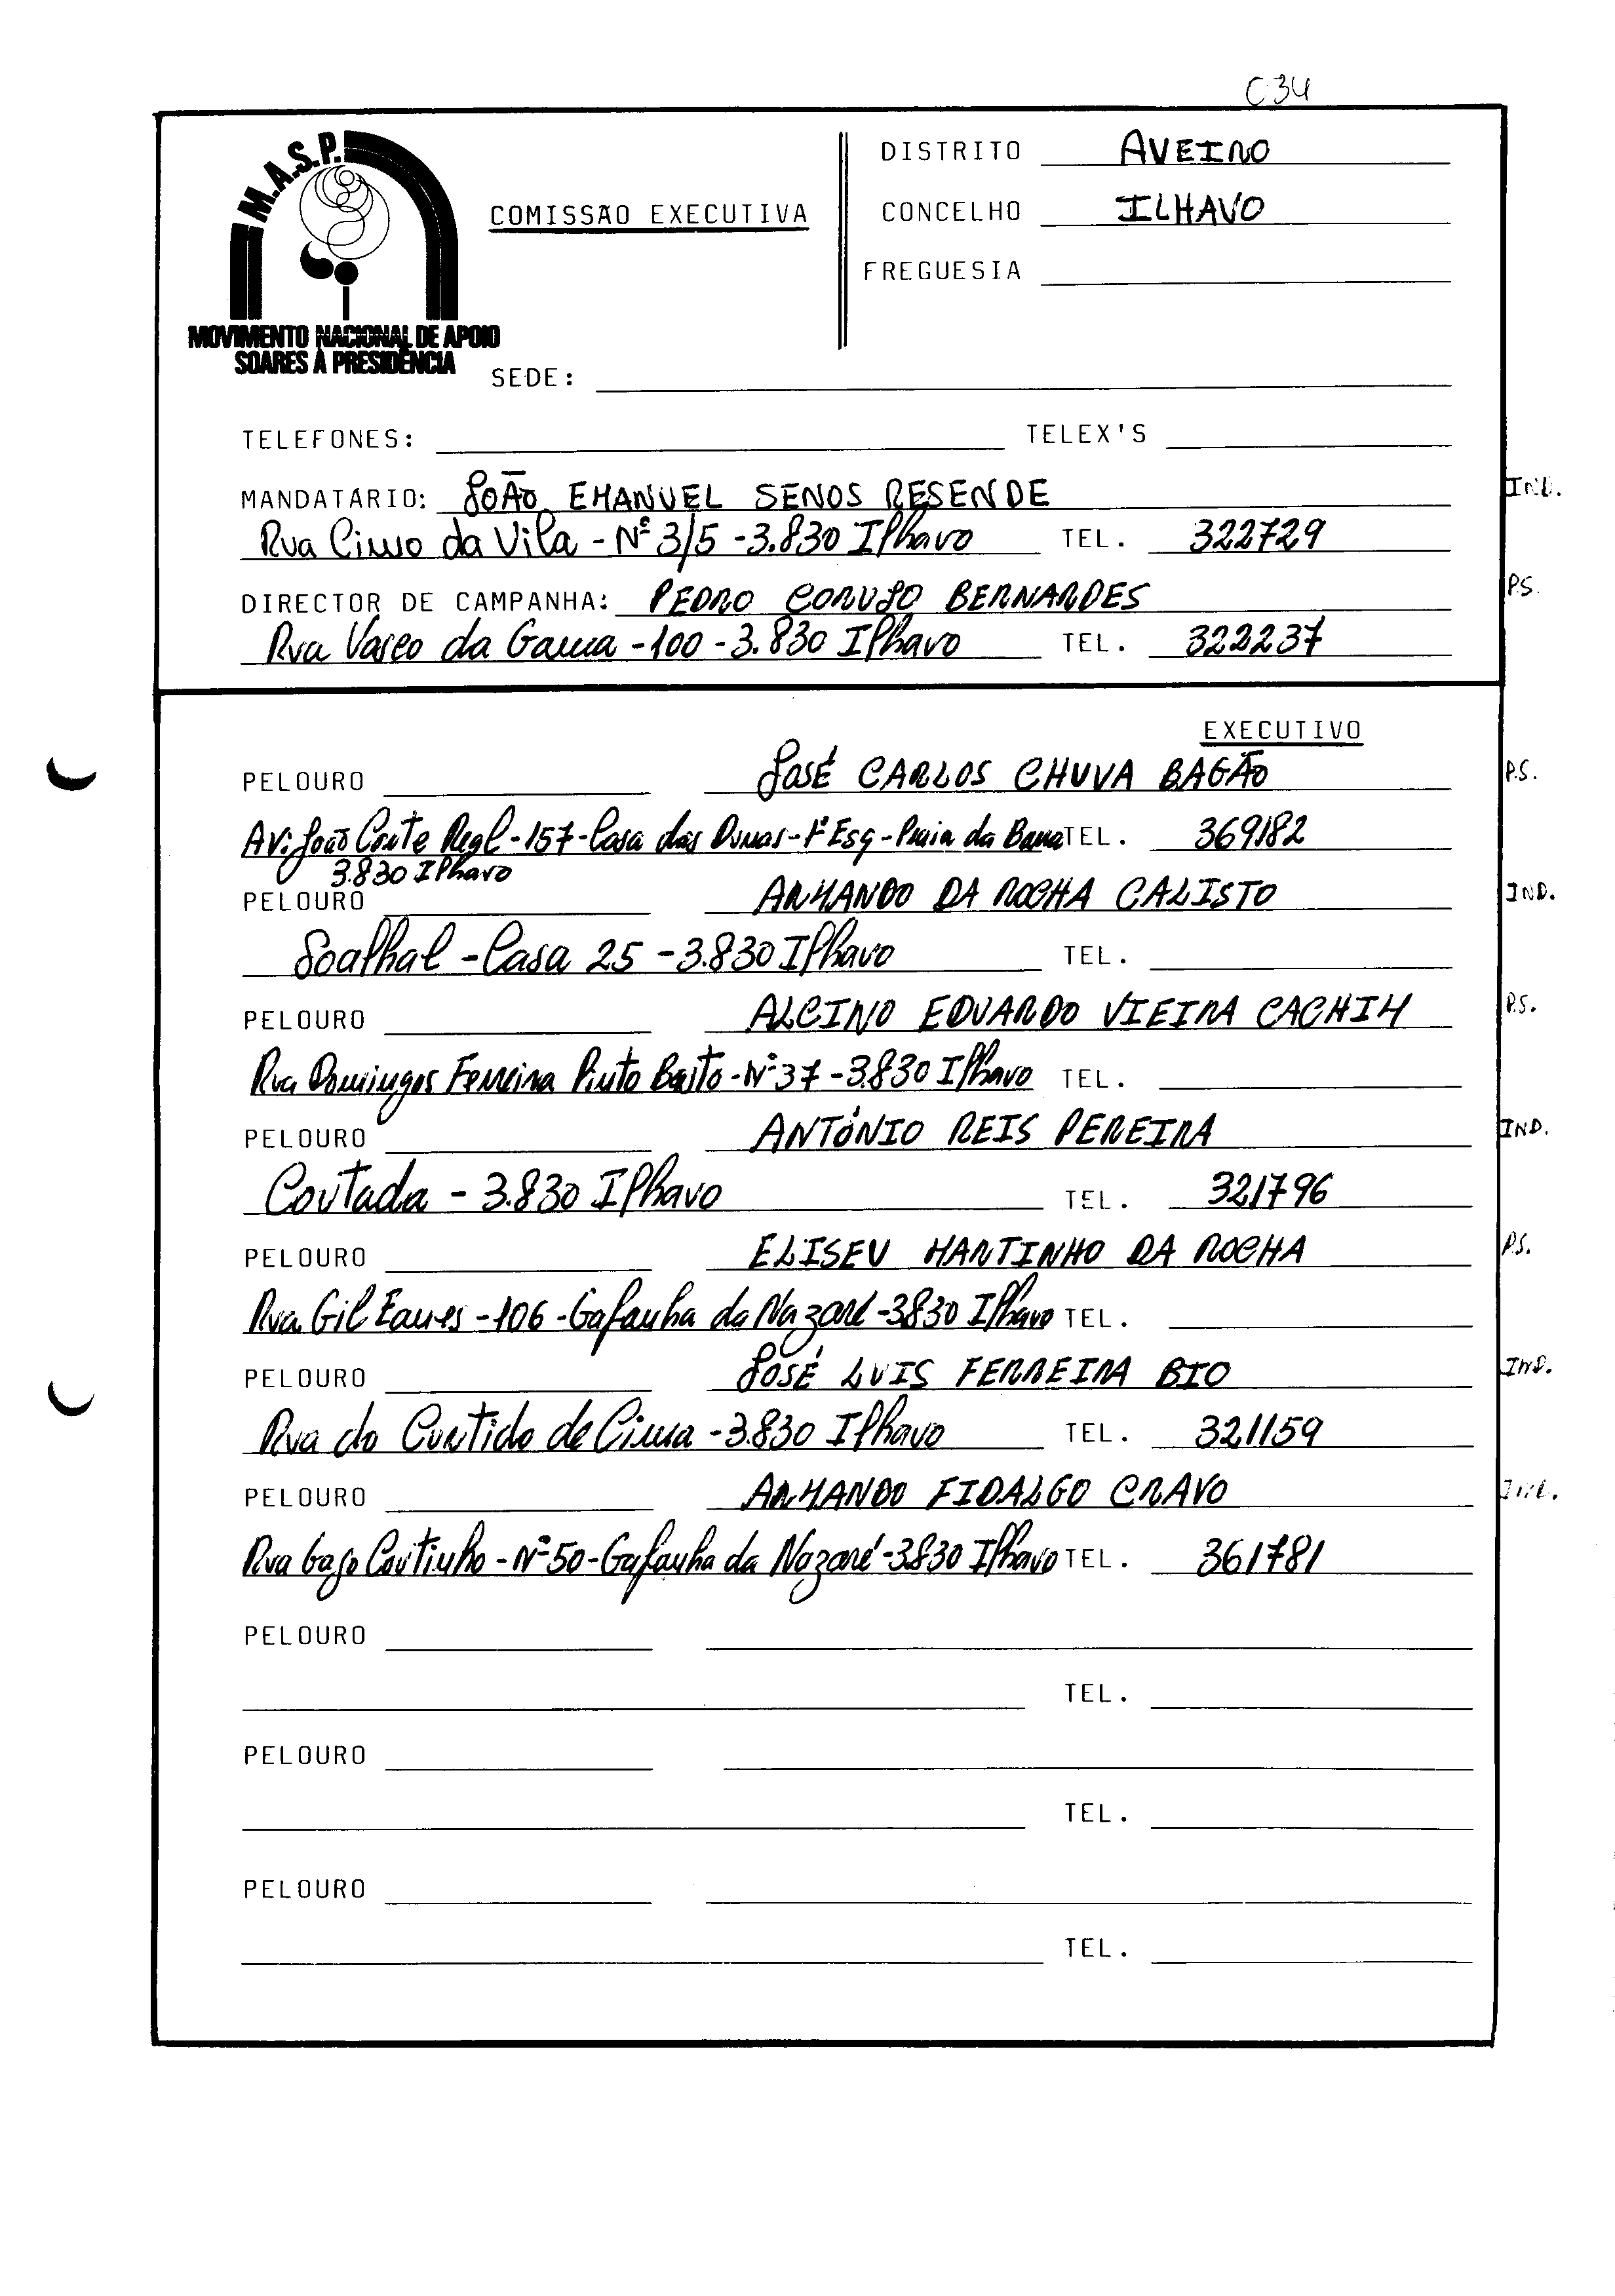 C34
M.A.S.P.
MOVIMENTO NACIONAL DE APOIO
SOARES À PRESIDÊNCIA
COMISSÃO EXECUTIVA
DISTRITO AVEIRO
CONCELHO ILHAVO
FREGUESIA
SEDE:
TELEFONES: TELEX'S
MANDATÁRIO: JOÃO EMANUEL SENOS RESENDE IND.
Rua Cimo da Vila - Nº 3/5 - 3.830 Ilhavo TEL. 322729
DIRECTOR DE CAMPANHA: PEDRO CORUJO BERNARDES P.S.
Rua Vasco da Gama - 100 - 3.830 Ilhavo TEL. 322237
EXECUTIVO
PELOURO JOSÉ CARLOS CHUVA BAGÃO P.S.
Av: João Corte Real - 157 - Casa das Dunas - 1º Esq - Praia da Barra TEL. 369182
3.830 Ilhavo
PELOURO ARMANDO DA ROCHA CALISTO IND.
Soalhal - Casa 25 - 3.830 Ilhavo TEL.
PELOURO ALCINO EDUARDO VIEIRA CACHIM P.S.
Rua Domingos Ferreira Pinto Basto - Nº 37 - 3.830 Ilhavo TEL.
PELOURO ANTÓNIO REIS PEREIRA IND.
Coutada - 3.830 Ilhavo TEL. 321796
PELOURO ELISEU MARTINHO DA ROCHA P.S.
Rua Gil Eanes - 106 - Gafanha da Nazaré - 3830 Ilhavo TEL.
PELOURO JOSÉ LUIS FERREIRA BIO IND.
Rua do Curtido de Cima - 3.830 Ilhavo TEL. 321159
PELOURO ARMANDO FIDALGO CRAVO IND.
Rua Gago Coutinho - Nº 50 - Gafanha da Nazaré - 3.830 Ilhavo TEL. 361781
PELOURO
TEL.
PELOURO
TEL.
PELOURO
TEL.